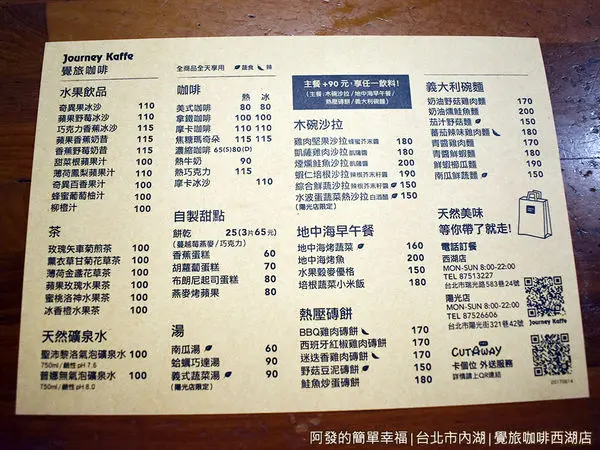 Journey Kaffe
覺旅咖啡
全商品全天享用 蔬食 辣
水果飲品
奇異果冰沙 110
蘋果野莓冰沙 110
巧克力香蕉冰沙 115
蘋果香蕉奶昔 115
香蕉野莓奶昔 115
甜菜根蘋果汁 100
薄荷鳳梨蘋果汁 110
奇異百香果汁 100
蜂蜜葡萄柚汁 100
柳橙汁 100
茶
玫瑰矢車菊煎茶 100
薰衣草甘菊花草茶 100
薄荷金盞花草茶 100
蘋果玫瑰水果茶 100
蜜桃洛神水果茶 100
冰香橙水果茶 100
天然礦泉水
聖沛黎洛氣泡礦泉水 100
750ml / 鹼性 pH 7.6
普娜無氣泡礦泉水 100
750ml / 鹼性 pH 8.0
咖啡 熱 冰
美式咖啡 80 80
拿鐵咖啡 100 100
摩卡咖啡 110 110
焦糖瑪奇朵 115 115
濃縮咖啡 65(S)80(D)
熱牛奶 90
熱巧克力 115
摩卡冰沙 110
自製甜點
餅乾 25(3片65元)
(蔓越莓燕麥 / 巧克力)
香蕉蛋糕 60
胡蘿蔔蛋糕 70
布朗尼起司蛋糕 80
燕麥烤蘋果 80
湯
南瓜湯 60
蛤蠣巧達湯 90
義式蔬菜湯 90
(陽光店限定)
主餐 +90 元,享任一飲料!
(主餐:木碗沙拉 / 地中海早午餐 /
熱壓磚餅 / 義大利碗麵)
木碗沙拉
雞肉堅果沙拉 蜂蜜芥末醬 180
凱薩雞肉沙拉 凱薩醬 180
煙燻鮭魚沙拉 凱薩醬 200
蝦仁培根沙拉 辣根芥末籽醬 180
綜合鮮蔬沙拉 辣根芥末籽醬 150
水波蛋蔬菜熱沙拉 白酒醋 150
(陽光店限定)
地中海早午餐
地中海烤蔬菜 160
地中海烤魚 200
水果穀麥優格 150
培根蔬菜小米飯 180
熱壓磚餅
BBQ雞肉磚餅 170
西班牙紅椒雞肉磚餅 170
迷迭香雞肉磚餅 170
野菇豆泥磚餅 150
鮭魚炒蛋磚餅 180
義大利碗麵
奶油野菇雞肉麵 170
奶油燻鮭魚麵 200
茄汁野菇麵 150
蕃茄辣味雞肉麵 170
青醬雞肉麵 170
青醬鮮蝦麵 180
鮮蝦櫛瓜麵 180
南瓜鮮蔬麵 150
天然美味
等你帶了就走!
電話訂餐
西湖店
MON-SUN 8:00-22:00
TEL 87513227
台北市瑞光路583巷24號
陽光店
MON-SUN 8:00-22:00
TEL 87526606
台北市陽光街321巷42號
Journey Kaffe
CUTAWAY
卡個位 外送服務
詳情請上QR連結
20170614
阿發的簡單幸福|台北市內湖|覺旅咖啡西湖店